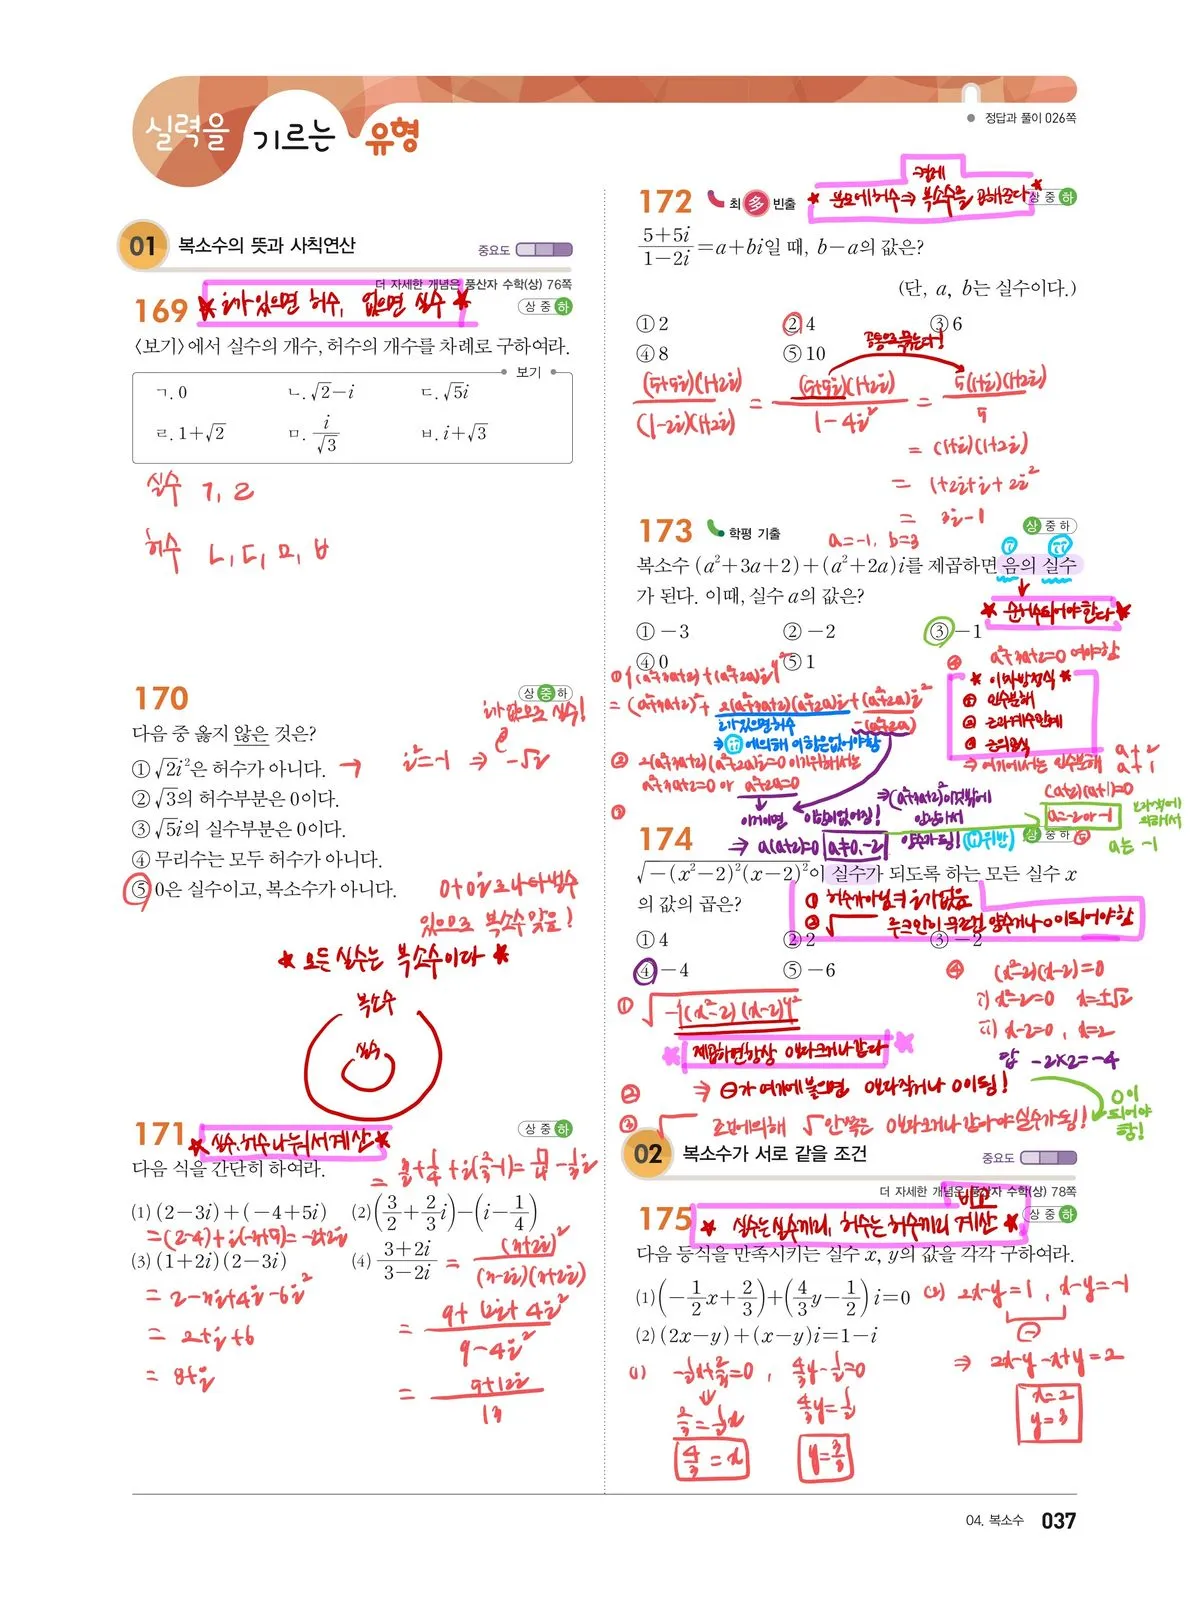 실력을 기르는 유형
정답과 풀이 026쪽
01 복소수의 뜻과 사칙연산
중요도
더 자세한 개념은 풍산자 수학(상) 76쪽
169 ★ i가 있으면 허수, 없으면 실수 ★
상 중 하
〈보기〉에서 실수의 개수, 허수의 개수를 차례로 구하여라.
보기
ㄱ. 0 ㄴ. √2−i ㄷ. √5i
ㄹ. 1+√2 ㅁ. i/√3 ㅂ. i+√3
실수 ㄱ, ㄹ
허수 ㄴ, ㄷ, ㅁ, ㅂ
170
상 중 하
i가 없으므로 실수!
다음 중 옳지 않은 것은?
① √2i²은 허수가 아니다. → i²=-1 ⇒ -√2
② √3의 허수부분은 0이다.
③ √5i의 실수부분은 0이다.
④ 무리수는 모두 허수가 아니다.
⑤ 0은 실수이고, 복소수가 아니다.
0+0i로 나타낼 수
있으므로 복소수 맞음!
★ 모든 실수는 복소수이다 ★
복소수
실수
171 ★ 실수, 허수 나눠서 계산 ★
상 중 하
다음 식을 간단히 하여라.
= 3/2+1/4+i(2/3-1)= 7/4 - 1/3i
(1) (2−3i)+(−4+5i) (2) (3/2+2/3i)−(i−1/4)
=(2-4)+i(-3+5)=-2+2i
(3) (1+2i)(2−3i) (4) 3+2i/3−2i = (3+2i)²/(3-2i)(3+2i)
= 2-3i+4i-6i²
= 2+i+6
= 8+i
= 9+12i+4i²/9-4i²
= 9+12i/13
172 최多빈출
켤레
★ 분모에 허수 ⇒ 복소수를 곱해준다 ★
상 중 하
5+5i/1−2i=a+bi일 때, b−a의 값은?
(단, a, b는 실수이다.)
① 2 ② 4 ③ 6
④ 8 ⑤ 10
공통으로 묶는다!
(5+5i)(1+2i)/(1-2i)(1+2i) = (5+5i)(1+2i)/1-4i² = 5(1+i)(1+2i)/5
= (1+i)(1+2i)
= 1+2i+i+2i²
= 3i-1
a=-1, b=3
173 학평 기출
상 중 하
복소수 (a²+3a+2)+(a²+2a)i를 제곱하면 음의 실수
가 된다. 이때, 실수 a의 값은?
★ 순허수 되어야 한다 ★
① −3 ② −2 ③ −1
④ 0 ⑤ 1
① {(a²+3a+2)+(a²+2a)i}²
= (a²+3a+2)²+2(a²+3a+2)(a²+2a)i+(a²+2a)²i²
i가 있으면 허수
⇒ ⅱ에 의해 이 항은 없어야 함
② 2(a²+3a+2)(a²+2a)i=0이기 위해서는
a²+3a+2=0 or a²+2a=0
이거이면 이 항이 없어짐!
⇒ a(a+2)=0 a≠0,-2
양수가 됨! (ⅰ 위반)
④ a²+3a+2=0 여야 함
★ 이차방정식 ★
① 인수분해
② 근과 계수 관계
③ 근의 공식
⇒ 여기에서는 인수분해
(a+2)(a+1)=0
a=-2 or -1
a는 -1
174
상 중 하
√−(x²−2)²(x−2)²이 실수가 되도록 하는 모든 실수 x
의 값의 곱은?
① 허수가 아님 즉 i가 없음
② √ 루트 안이 무조건 양수거나 0이 되어야 함
① 4 ② 2 ③ −2
④ −4 ⑤ −6
① √-{(x²-2)(x-2)}²
★ 제곱하면 항상 0보다 크거나 같다 ★
② ⇒ ⊖가 여기에 붙으면 0보다 작거나 0이 됨!
③ √ 조건에 의해 √ 안쪽은 0보다 크거나 같아야 실수가 됨!
0이 되어야 함!
④ (x²-2)(x-2)=0
ⅰ) x²-2=0 x=±√2
ⅱ) x-2=0, x=2
답 -2×2=-4
02 복소수가 서로 같을 조건
중요도
더 자세한 개념은 풍산자 수학(상) 78쪽
비교
175 ★ 실수는 실수끼리, 허수는 허수끼리 계산 ★
상 중 하
다음 등식을 만족시키는 실수 x, y의 값을 각각 구하여라.
(1) (−1/2x+2/3)+(4/3y−1/2)i=0
(2) (2x−y)+(x−y)i=1−i
(1) -1/2x+2/3=0, 4/3y-1/2=0
2/3=1/2x 4/3y=1/2
4/3=x y=3/8
(2) 2x-y=1, x-y=-1
⊖
⇒ 2x-y-x+y=2
x=2
y=3
04. 복소수 037